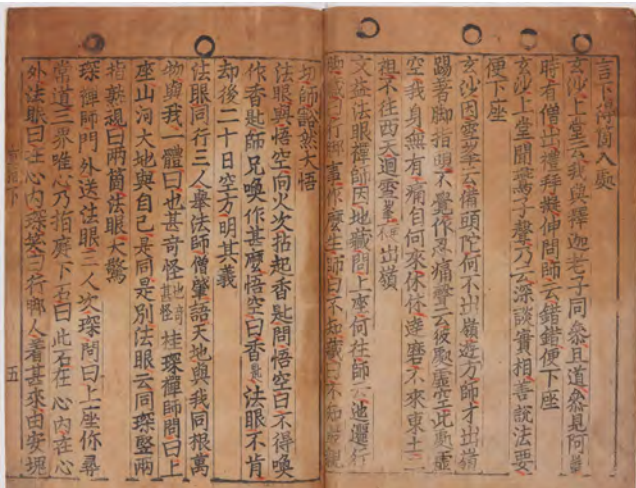 言下得箇入處
玄沙上堂云我與釋迦老子同叅且道叅見阿誰
時有僧出禮拜擬伸問師云錯錯便下座
玄沙上堂聞鷰子聲乃云深談實相善說法要
便下座
玄沙因雪峯云備頭陀何不出嶺遊方師才出嶺
踢著脚指頭不覺作忍痛聲云彼處虛空此處虛
空我身無有痛自何來休休達磨不來東土二
祖不往西天迴雪峯 出嶺
文益法眼禪師因地藏問上座何往師云迤邐行
脚藏云行脚事作麽生師曰不知藏曰不知最親
切師豁然大悟
法眼與悟空向火次拈起香匙問悟空曰不得喚
作香匙師兄喚作甚麽悟空曰香匙法眼不肯
却後二十日空方明其義
法眼同行三人擧法師僧肇語天地與我同根萬
物與我一體曰也甚奇怪也奇甚怪桂琛禪師問曰上
座山河大地與自己是同是別法眼云同琛竪兩
指熟視曰兩箇法眼大驚
琛禪師門外送法眼三人次琛問曰上座你尋
常道三界唯心乃指庭下石曰此石在心內在心
外法眼曰在心內琛笑云行脚人着甚來由安塊
直指下 五